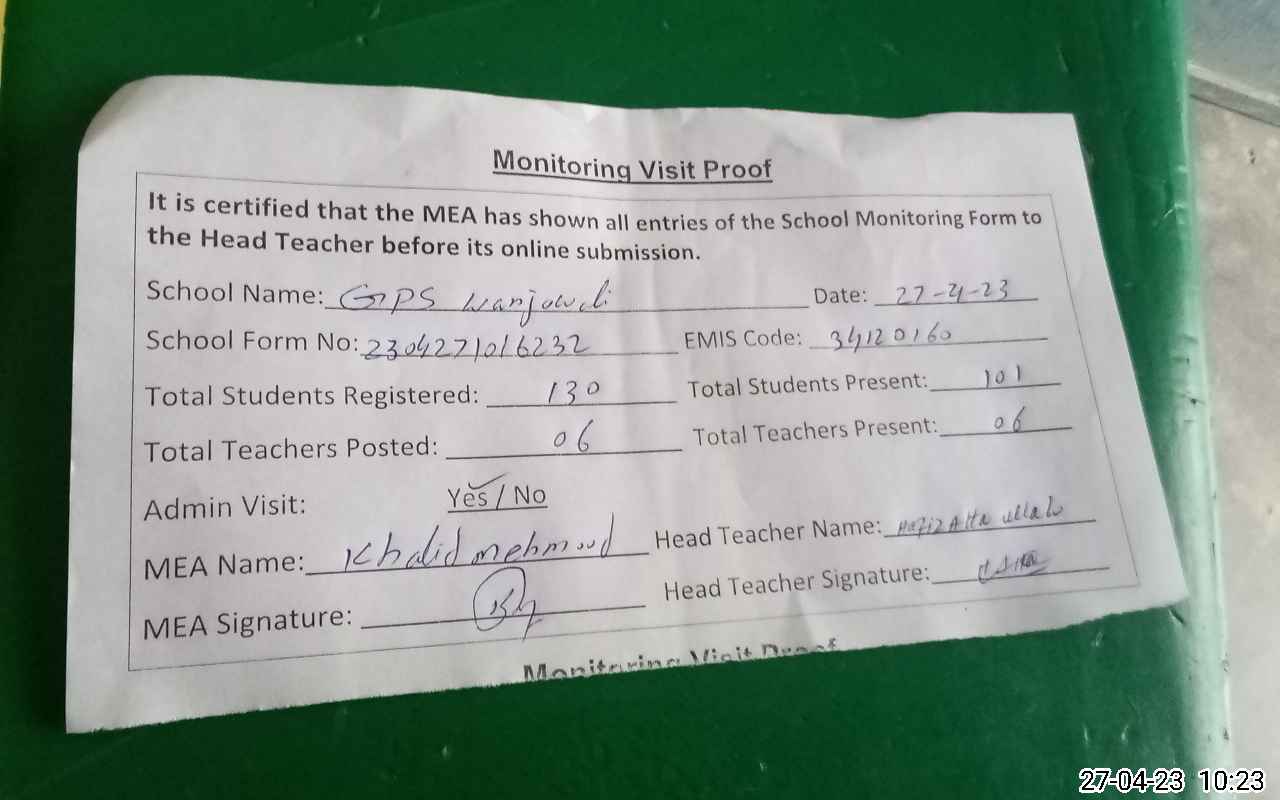 Monitoring Visit Proof
It is certified that the MEA has shown all entries of the School Monitoring Form to
the Head Teacher before its online submission.
School Name: GPS Wanjowali Date: 27-4-23
School Form No: 2304271016232 EMIS Code: 34120160
Total Students Registered: 130 Total Students Present: 101
Total Teachers Posted: 06 Total Teachers Present: 06
Admin Visit: Yes / No
MEA Name: Khalid mehmood Head Teacher Name: Hafiz Atta ullah
MEA Signature: Head Teacher Signature:
Monitoring Visit Proof
27-04-23 10:23